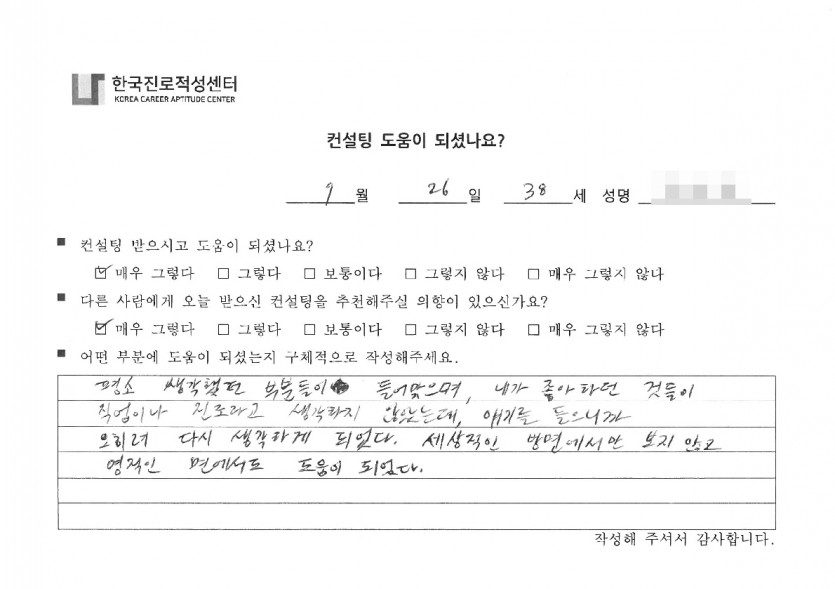 한국진로적성센터
KOREA CAREER APTITUDE CENTER
컨설팅 도움이 되셨나요?
9 월 26 일 38 세 성명
■ 컨설팅 받으시고 도움이 되셨나요?
☑ 매우 그렇다 □ 그렇다 □ 보통이다 □ 그렇지 않다 □ 매우 그렇지 않나
■ 다른 사람에게 오늘 받으신 컨설팅을 추천해주실 의향이 있으신가요?
☑ 매우 그렇다 □ 그렇다 □ 보통이다 □ 그렇지 않다 □ 매우 그렇지 않다
■ 어떤 부분에 도움이 되셨는지 구체적으로 작성해주세요.
평소 생각했던 부분들이 들어맞으며, 내가 좋아하던 것들이
직업이나 진로라고 생각하지 않았는데, 얘기를 들으니까
오히려 다시 생각하게 되었다. 세상적인 방면에서만 보지 않고
영적인 면에서도 도움이 되었다.
작성해 주셔서 감사합니다.